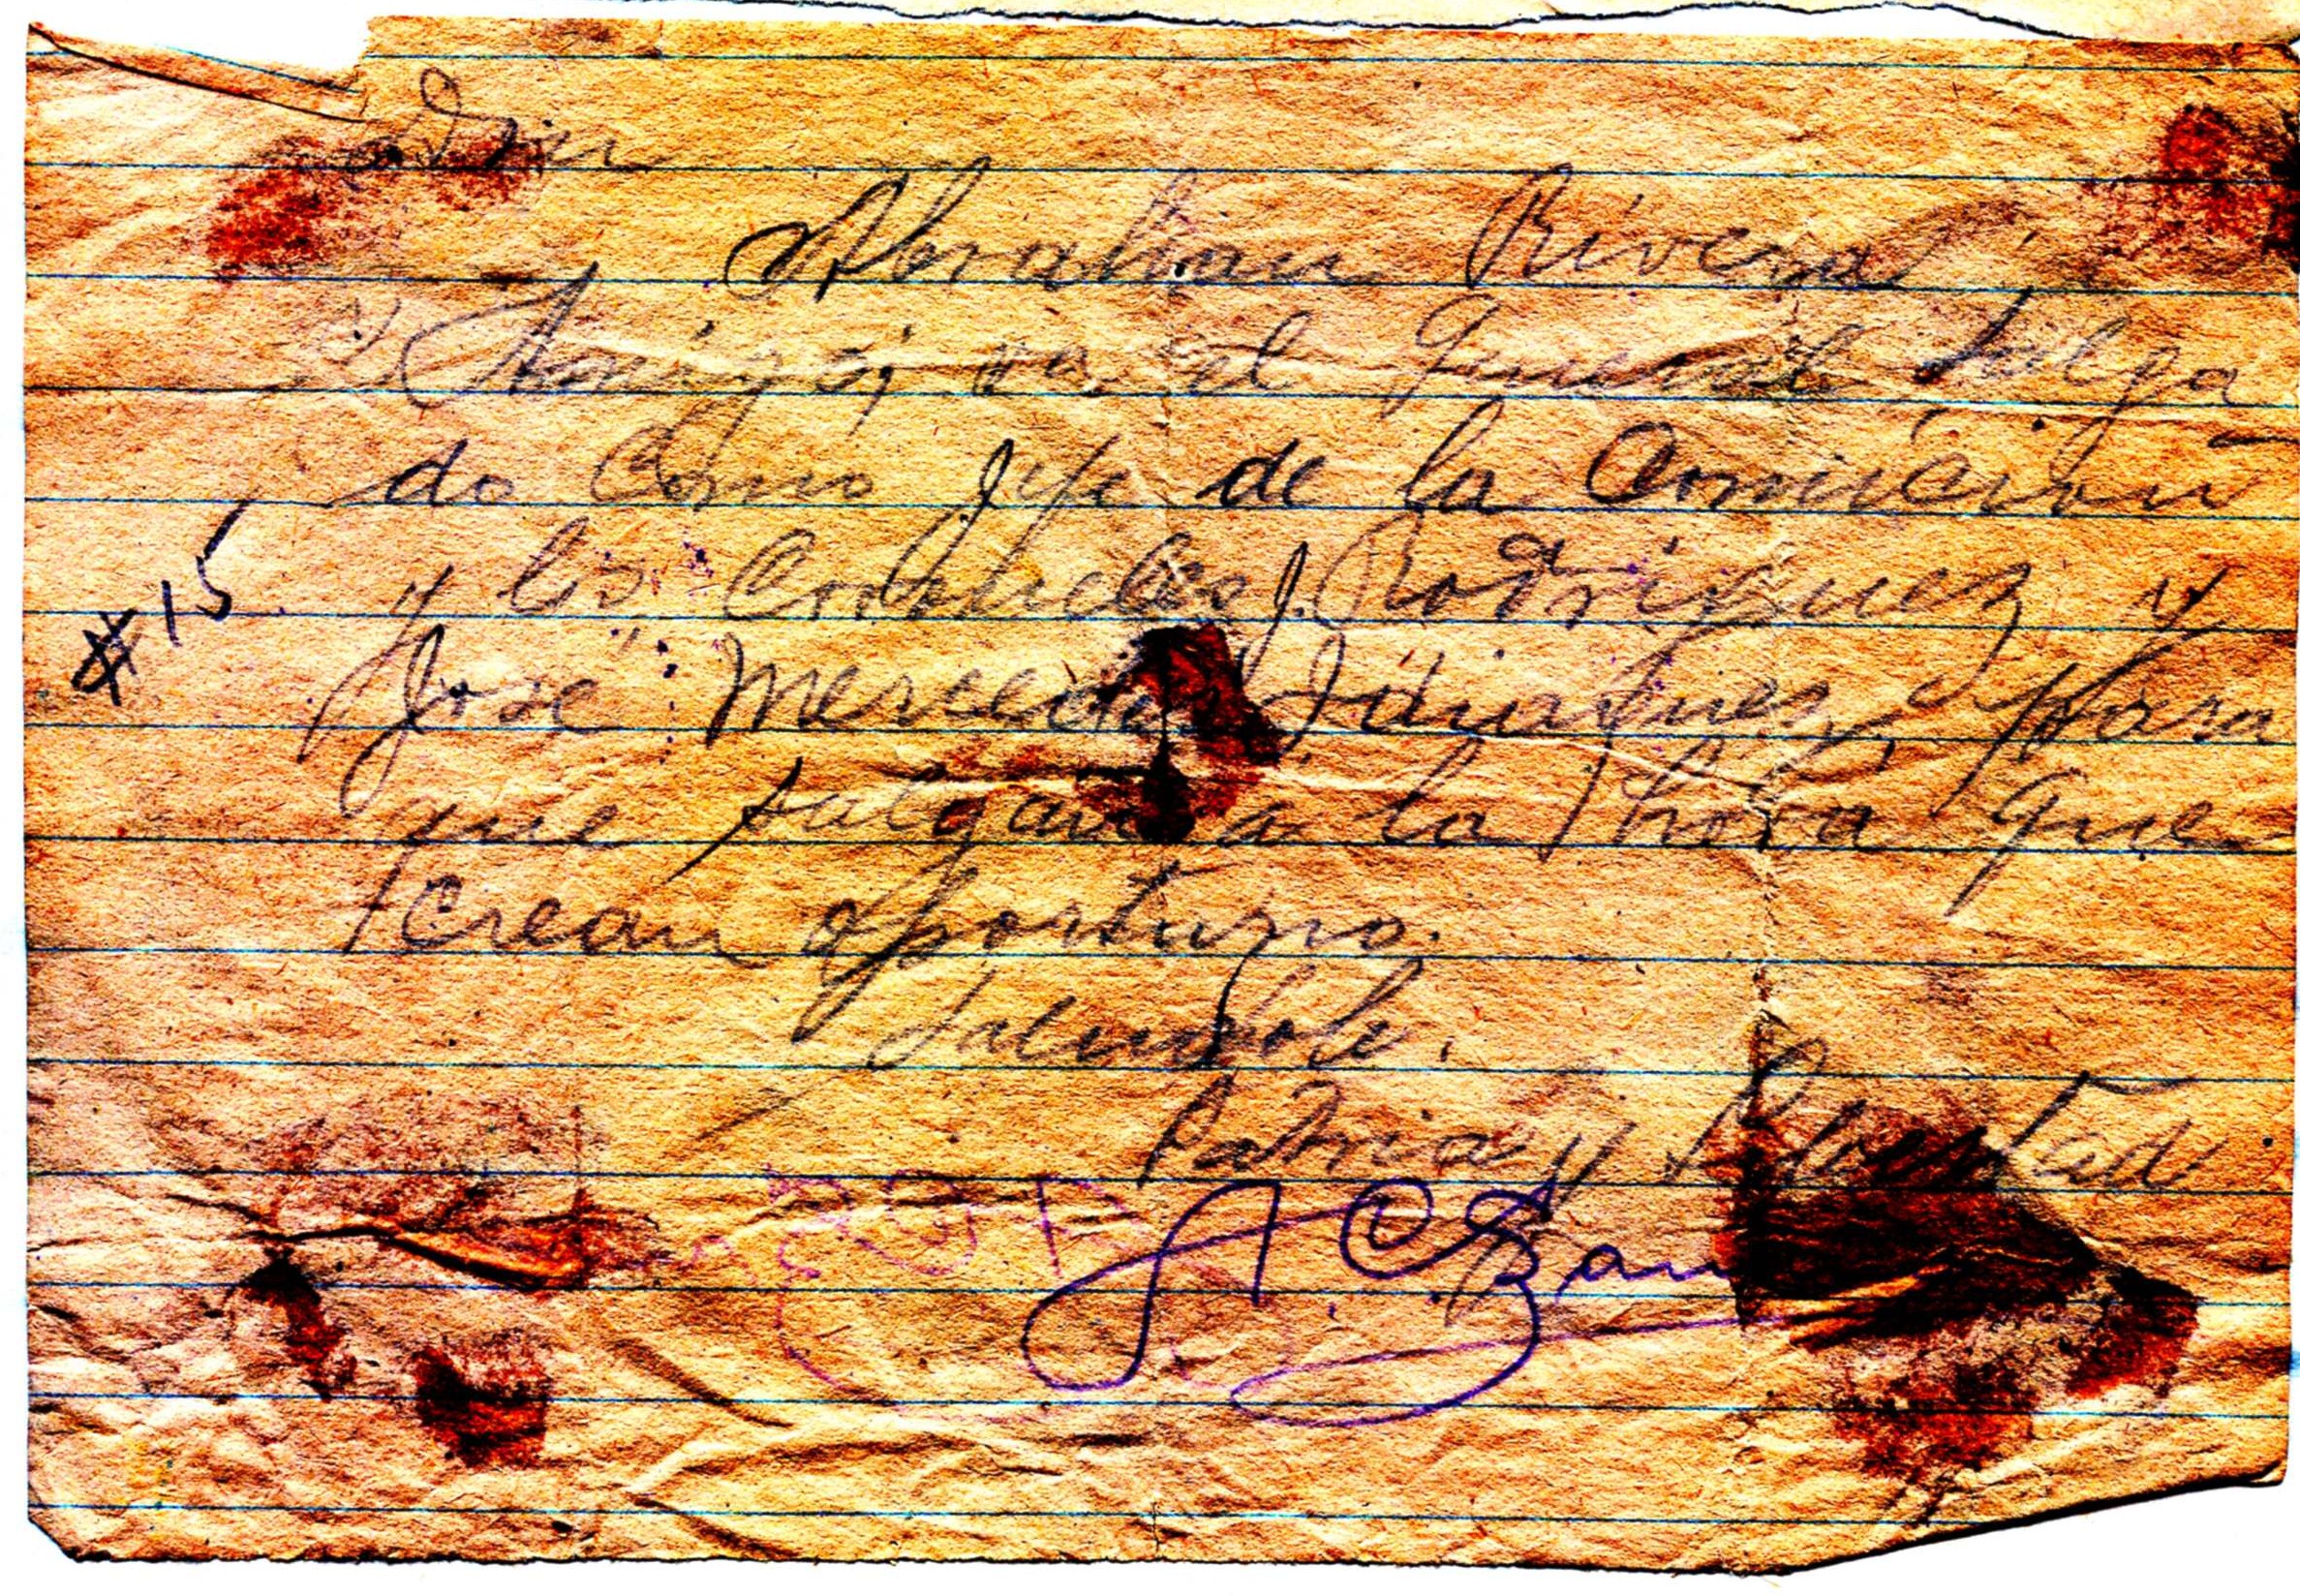 a Don
Abraham Rivera
Amigo; va el General Salga
do Como Jefe de la Comición
y los Coroneles J. Rodríguez y
#15
José Mercedes Idiaquez, para
que salgan a la hora que
crean oportuno.
Saludole.
Patria y Libertad
A C San